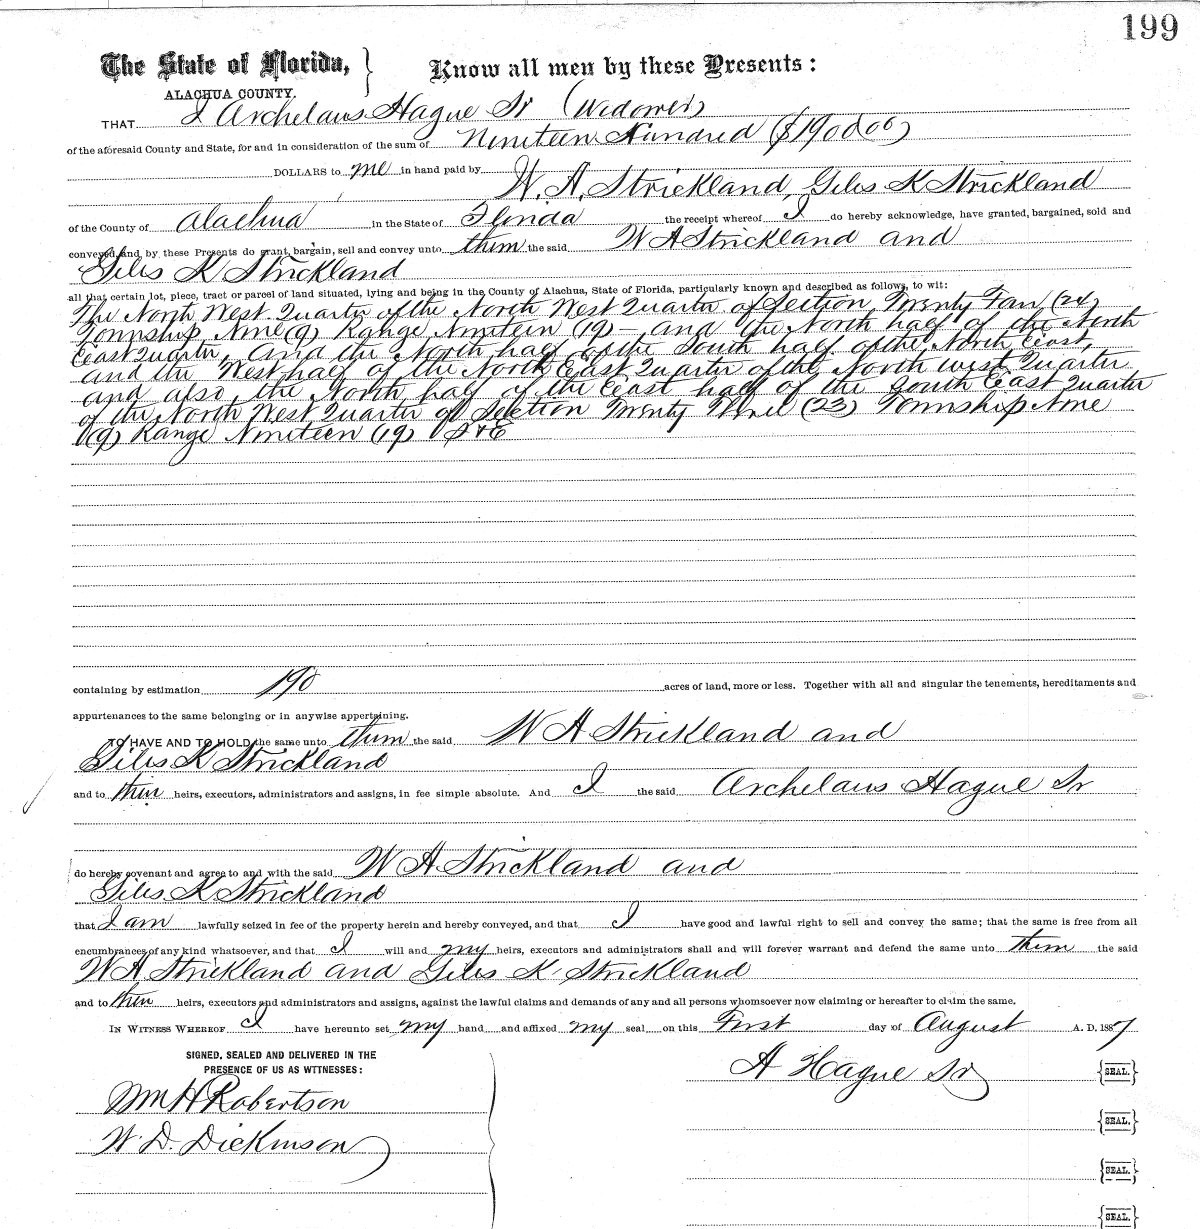 199
The State of Florida, } Know all men by these Presents:
ALACHUA COUNTY.
THAT I Archelaus Hague Sr (Widower)
of the aforesaid County and State, for and in consideration of the sum of Nineteen Hundred ($190000)
DOLLARS to me in hand paid by
W. A. Strickland, Giles K Strickland
of the County of Alachua in the State of Florida the receipt whereof I do hereby acknowledge, have granted, bargained, sold and
conveyed, and, by these Presents do grant, bargain, sell and convey unto them the said W A Strickland and
Giles K Strickland
all that certain lot, piece, tract or parcel of land situated, lying and being in the County of Alachua, State of Florida, particularly known and described as follows, to wit:
The North West Quarter of the North West Quarter of Section Twenty Four (24)
Township Nine (9) Range Nineteen (19) - and the North half of the North
East Quarter, and the North half of the South half of the North East,
and the West half of the North East Quarter of the North west Quarter
and also, the North half of the East half of the South East Quarter
of the North West Quarter of Section Twenty Three (23) Township Nine
(9) Range Nineteen (19) S & E
containing by estimation 190 acres of land, more or less. Together with all and singular the tenements, hereditaments and
appurtenances to the same belonging or in anywise appertaining.
TO HAVE AND TO HOLD the same unto them the said W A Strickland and
Giles K Strickland
and to their heirs, executors, administrators and assigns, in fee simple absolute. And I the said Archelaus Hague Sr
do hereby covenant and agree to and with the said W A Strickland and
Giles K Strickland
that I am lawfully seized in fee of the property herein and hereby conveyed, and that I have good and lawful right to sell and convey the same; that the same is free from all
encumbrances of any kind whatsoever, and that I will and my heirs, executors and administrators shall and will forever warrant and defend the same unto them the said
W A Strickland and Giles K Strickland
and to their heirs, executors and administrators and assigns, against the lawful claims and demands of any and all persons whomsoever now claiming or hereafter to claim the same.
IN WITNESS WHEREOF I have hereunto set my hand and affixed my seal on this First day of August A. D. 1887
SIGNED, SEALED AND DELIVERED IN THE
PRESENCE OF US AS WITNESSES:
A Hague Sr {SEAL.}
Wm H Robertson
{SEAL.}
W. D. Dickinson
{SEAL.}
{SEAL.}